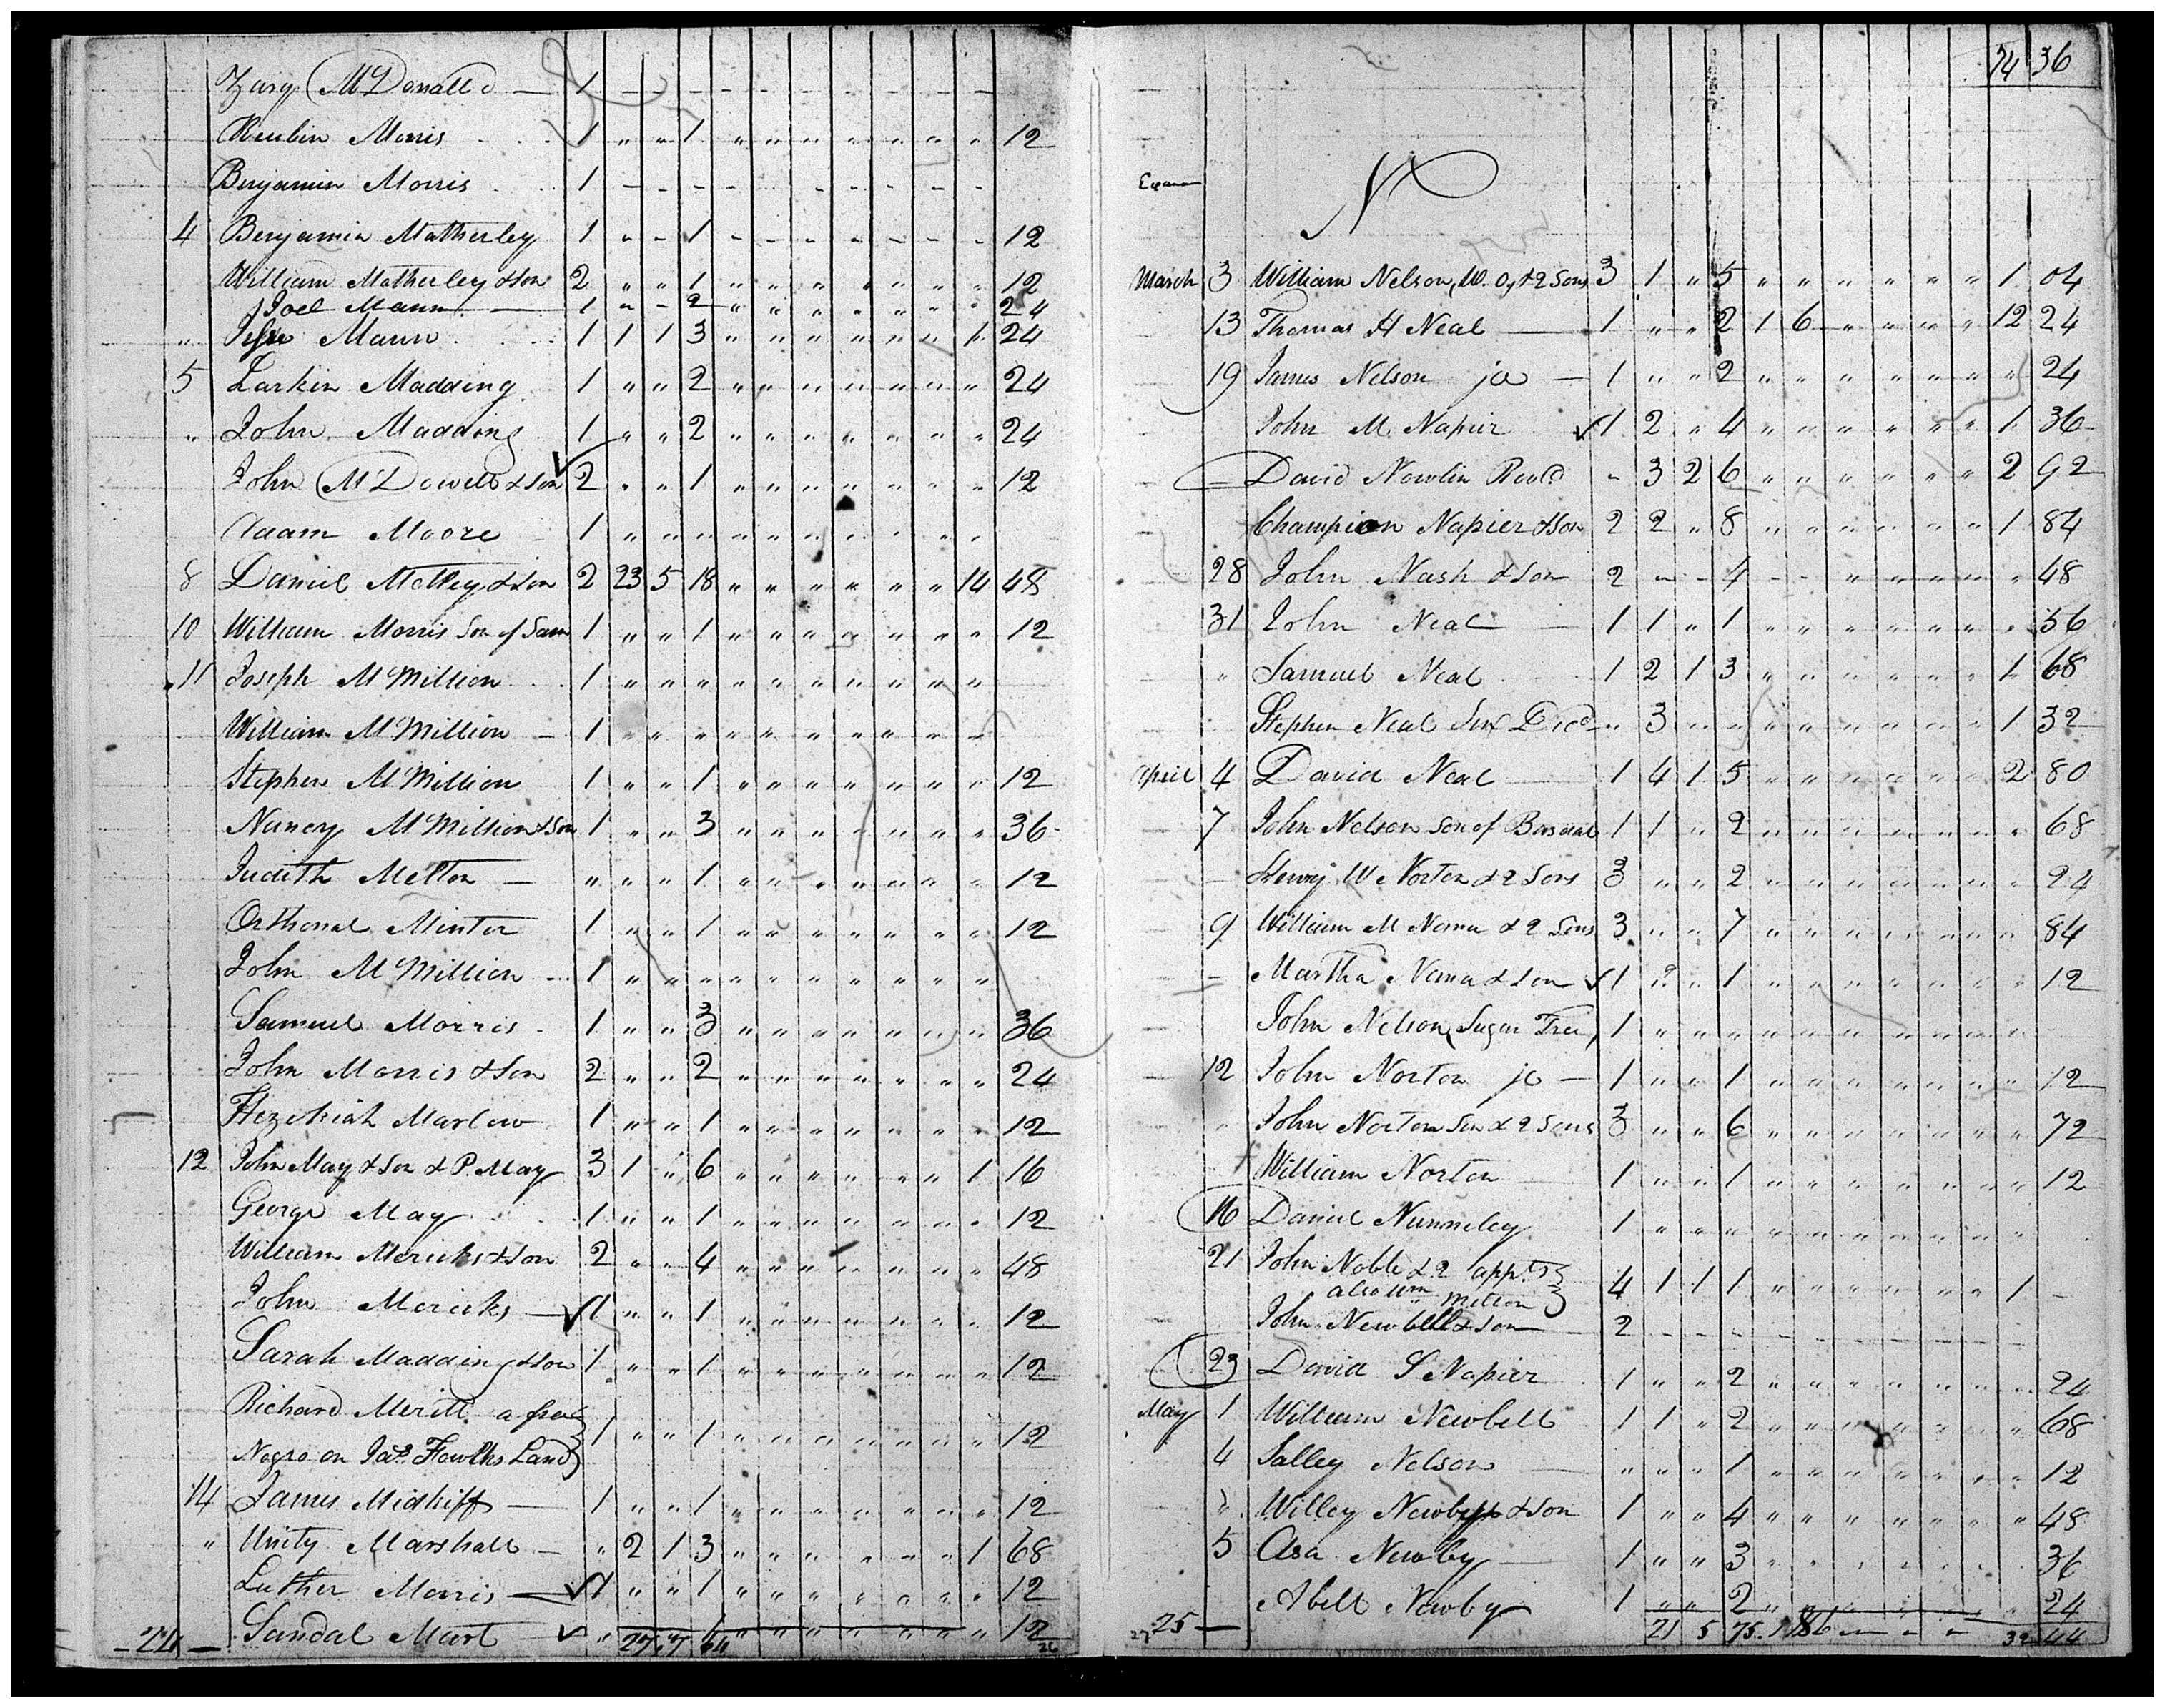 Zary McDonald — 1 - - - - - - - - -
Reubin Morris 1 " " 1 " " " " " " " 12
Benjamin Morris 1 - - - - - - - - -
4 Benjamin Matherley 1 " - 1 - - - - - - - 12
William Matherley & son 2 " " 1 " " " " " " " 12
Joel Mann — 1 " - 2 " " " " " " " 24
" Jesse Mann 1 1 1 3 " " " " " " 1 24
5 Larkin Madding 1 " " 2 " " " " " " " 24
" John Madding 1 " " 2 " " " " " " " 24
John McDowell & son 2 " " 1 " " " " " " " 12
Adam Moore 1 " " " " " " " " " "
8 Daniel Motley & son 2 23 5 18 " " " " " " 14 48
10 William Morris Son of Sam 1 " " 1 " " " " " " " 12
11 Joseph McMillion 1 " " " " " " " " " "
William McMillion — 1 " " " " " " " " " "
Stephen McMillion 1 " " 1 " " " " " " " 12
Nancy McMillion & son 1 " " 3 " " " " " " " 36
Judith Melton — " " " 1 " " " " " " " 12
Orthonal Minter 1 " " 1 " " " " " " " 12
John McMillion 1 " " " " " " " " " "
Samuel Morris 1 " " 3 " " " " " " " 36
John Morris & son 2 " " 2 " " " " " " " 24
Hezekiah Marlow 1 " " 1 " " " " " " " 12
12 John May & Son & P. May 3 1 " 6 " " " " " " 1 16
George May 1 " " 1 " " " " " " " 12
William Mericks & son 2 " " 4 " " " " " " " 48
John Mericks — ✓ 1 " " 1 " " " " " " " 12
Sarah Madding & son 1 " " 1 " " " " " " " 12
Richard Meritt a free } 1 " " 1 " " " " " " " 12
Negro on Jas. Fowlks Land }
14 James Midkiff — 1 " " 1 " " " " " " " 12
" Unity Marshall — " 2 1 3 " " " " " " 1 68
Luther Morris — ✓ 1 " " 1 " " " " " " " 12
Sandal Mart — ✓ " " " " " " " " " 12
27 7 64
74 36
N
March 3 William Nelson, W. O, & 2 Sons 3 1 " 5 " " " " " " 1 04
13 Thomas H Neal — 1 " " 2 1 6 " " " " 12 24
19 James Nelson jr — 1 " " 2 " " " " " " " 24
John M. Napier ✓ 1 2 " 4 " " " " " " 1 36
David Nowlin " 3 2 6 " " " " " " 2 92
Champion Napier & son 2 2 " 8 " " " " " " 1 84
28 John Nash & son 2 - - 4 - - " " " " " 48
31 John Neal — 1 1 " 1 " " " " " " " 56
" Samuel Neal 1 2 1 3 " " " " " " 1 68
Stephen Neal Senr Decd " 3 " " " " " " " " 1 32
April 4 David Neal — 1 4 1 5 " " " " " " 2 80
7 John Nelson son of 1 1 " 2 " " " " " " " 68
— W Norton & 2 Sons 3 " " 2 " " " " " " " 24
9 William M Nema & 2 Sons 3 " " 7 " " " " " " " 84
— Martha Nema & son ✓ 1 " 1 " " " " " " " 12
John Nelson (Sugar Tree) 1 " " " " " " " " " "
12 John Norton jr — 1 " " 1 " " " " " " " 12
" John Norton Sen & 2 Sons 3 " " 6 " " " " " " " 72
William Norton 1 " " 1 " " " " " " " 12
16 Daniel Nunneley 1 " " " " " " " " " "
21 John Noble & 2 appts } 4 1 1 1 " " " " " " 1 -
also Wm Mitton }
John Newbell & son — 2 - - - - - - - - -
23 David S Napier 1 " " 2 " " " " " " " 24
May 1 William Newbell 1 1 " 2 " " " " " " " 68
4 Salley Nelson — " " " 1 " " " " " " " 12
" Willey & son 1 " " 4 " " " " " " " 48
5 Asa Newby — 1 " " 3 " " " " " " " 36
Abell Newby 1 " " 2 " " " " " " " 24
25 — 21 5 75 32 44